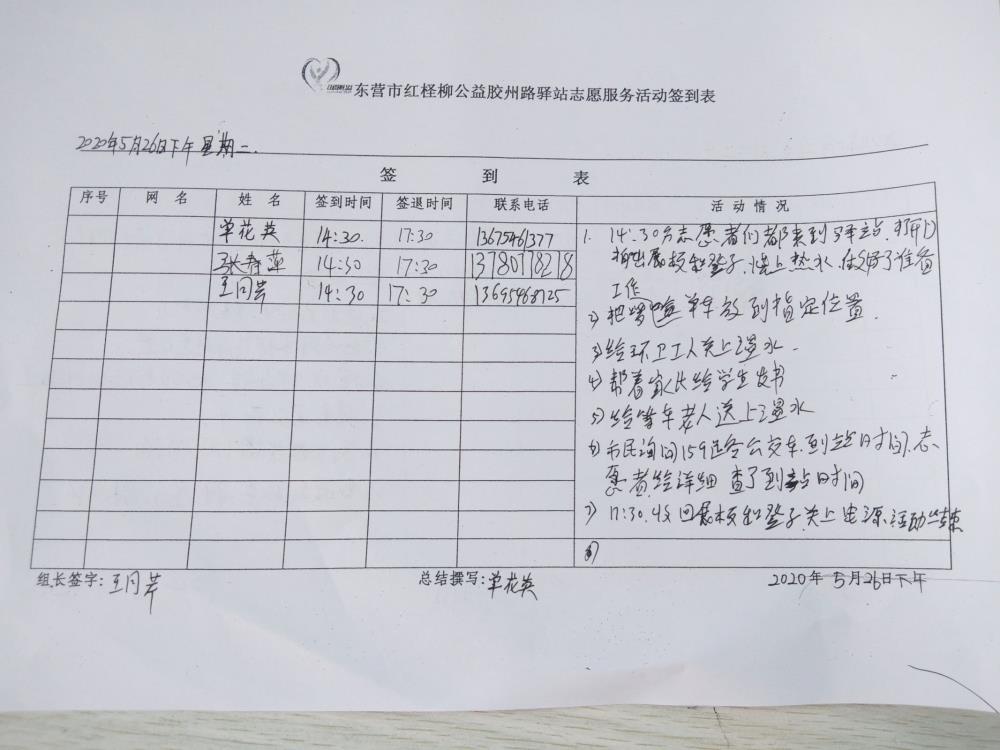 东营市红柽柳公益胶州路驿站志愿服务活动签到表
2020年5月26日下午 星期二.
签 到 表
序号 网 名 姓 名 签到时间 签退时间 联系电话 活 动 情 况
单花英 14:30. 17:30 13675461377
14:30 17:30 13780778218
王同芹 14:30 17:30 13695468725
1. 14:30分志愿者们都来到驿站.打开门
搬出展板和凳子.烧上热水.做好了准备
工作
2) 把 单车放到指定位置.
3) 给环卫工人送上温水.
4) 帮着家长给学生发书
5) 给等车老人送上温水
6) 市民询问159路公交车.到站时间.志
愿者给详细查了到站时间
7) 17:30.收回展板和凳子.关上电源.活动结束
组长签字: 王同芹 总结撰写: 单花英 2020年 5月26日下午